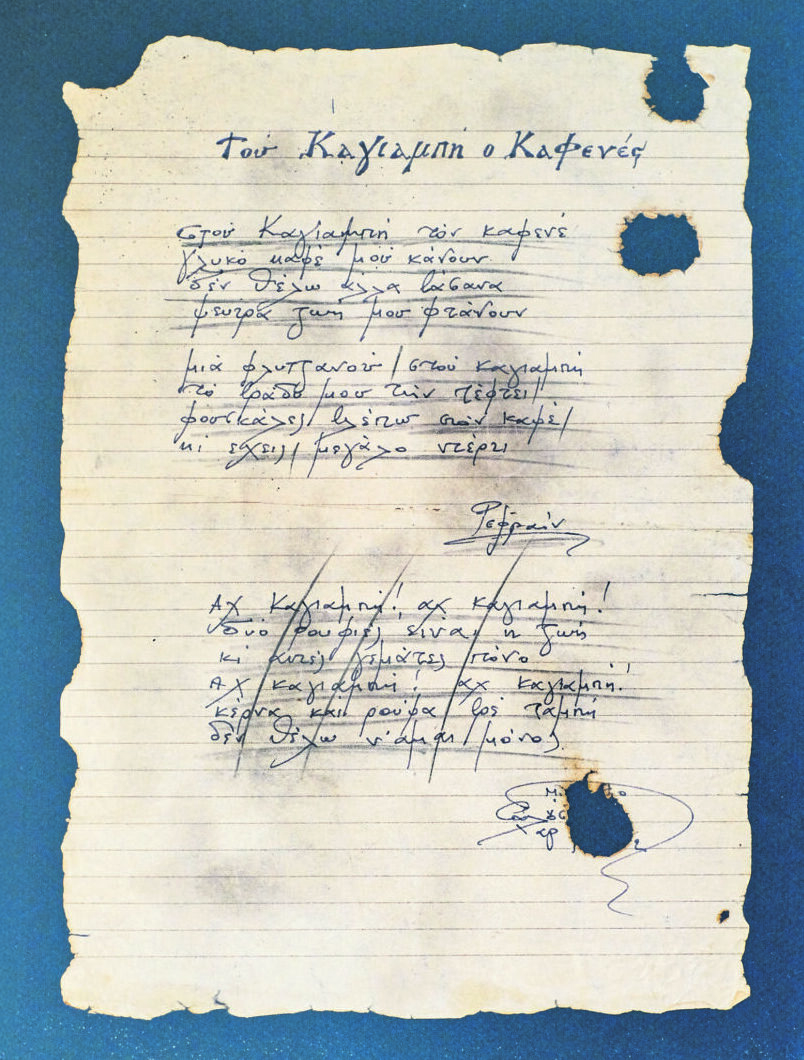 Του Καγιαμπή ο Καφενές
στου Καγιαμπή τον καφενέ
γλυκό καφέ μου κάνουν
δεν θέλω άλλα βάσανα
ψεύτρα ζωή μου φτάνουν
μιά φλυτζανού / στου καγιαμπή
το βράδυ μου την πέφτει /
φουσκάλες βλέπω στον καφέ /
κι έχεις / μεγάλο ντέρτι
Ρεφραίν
Αχ Καγιαμπή! αχ καγιαμπή!
δυό ρουφιές είναι η ζωή
κι αυτές γεμάτες πόνο
Αχ καγιαμπή! αχ καγιαμπή!
κέρνα και ρούφα βρε ταμπή
δεν θέλω ν'άμαι μόνος